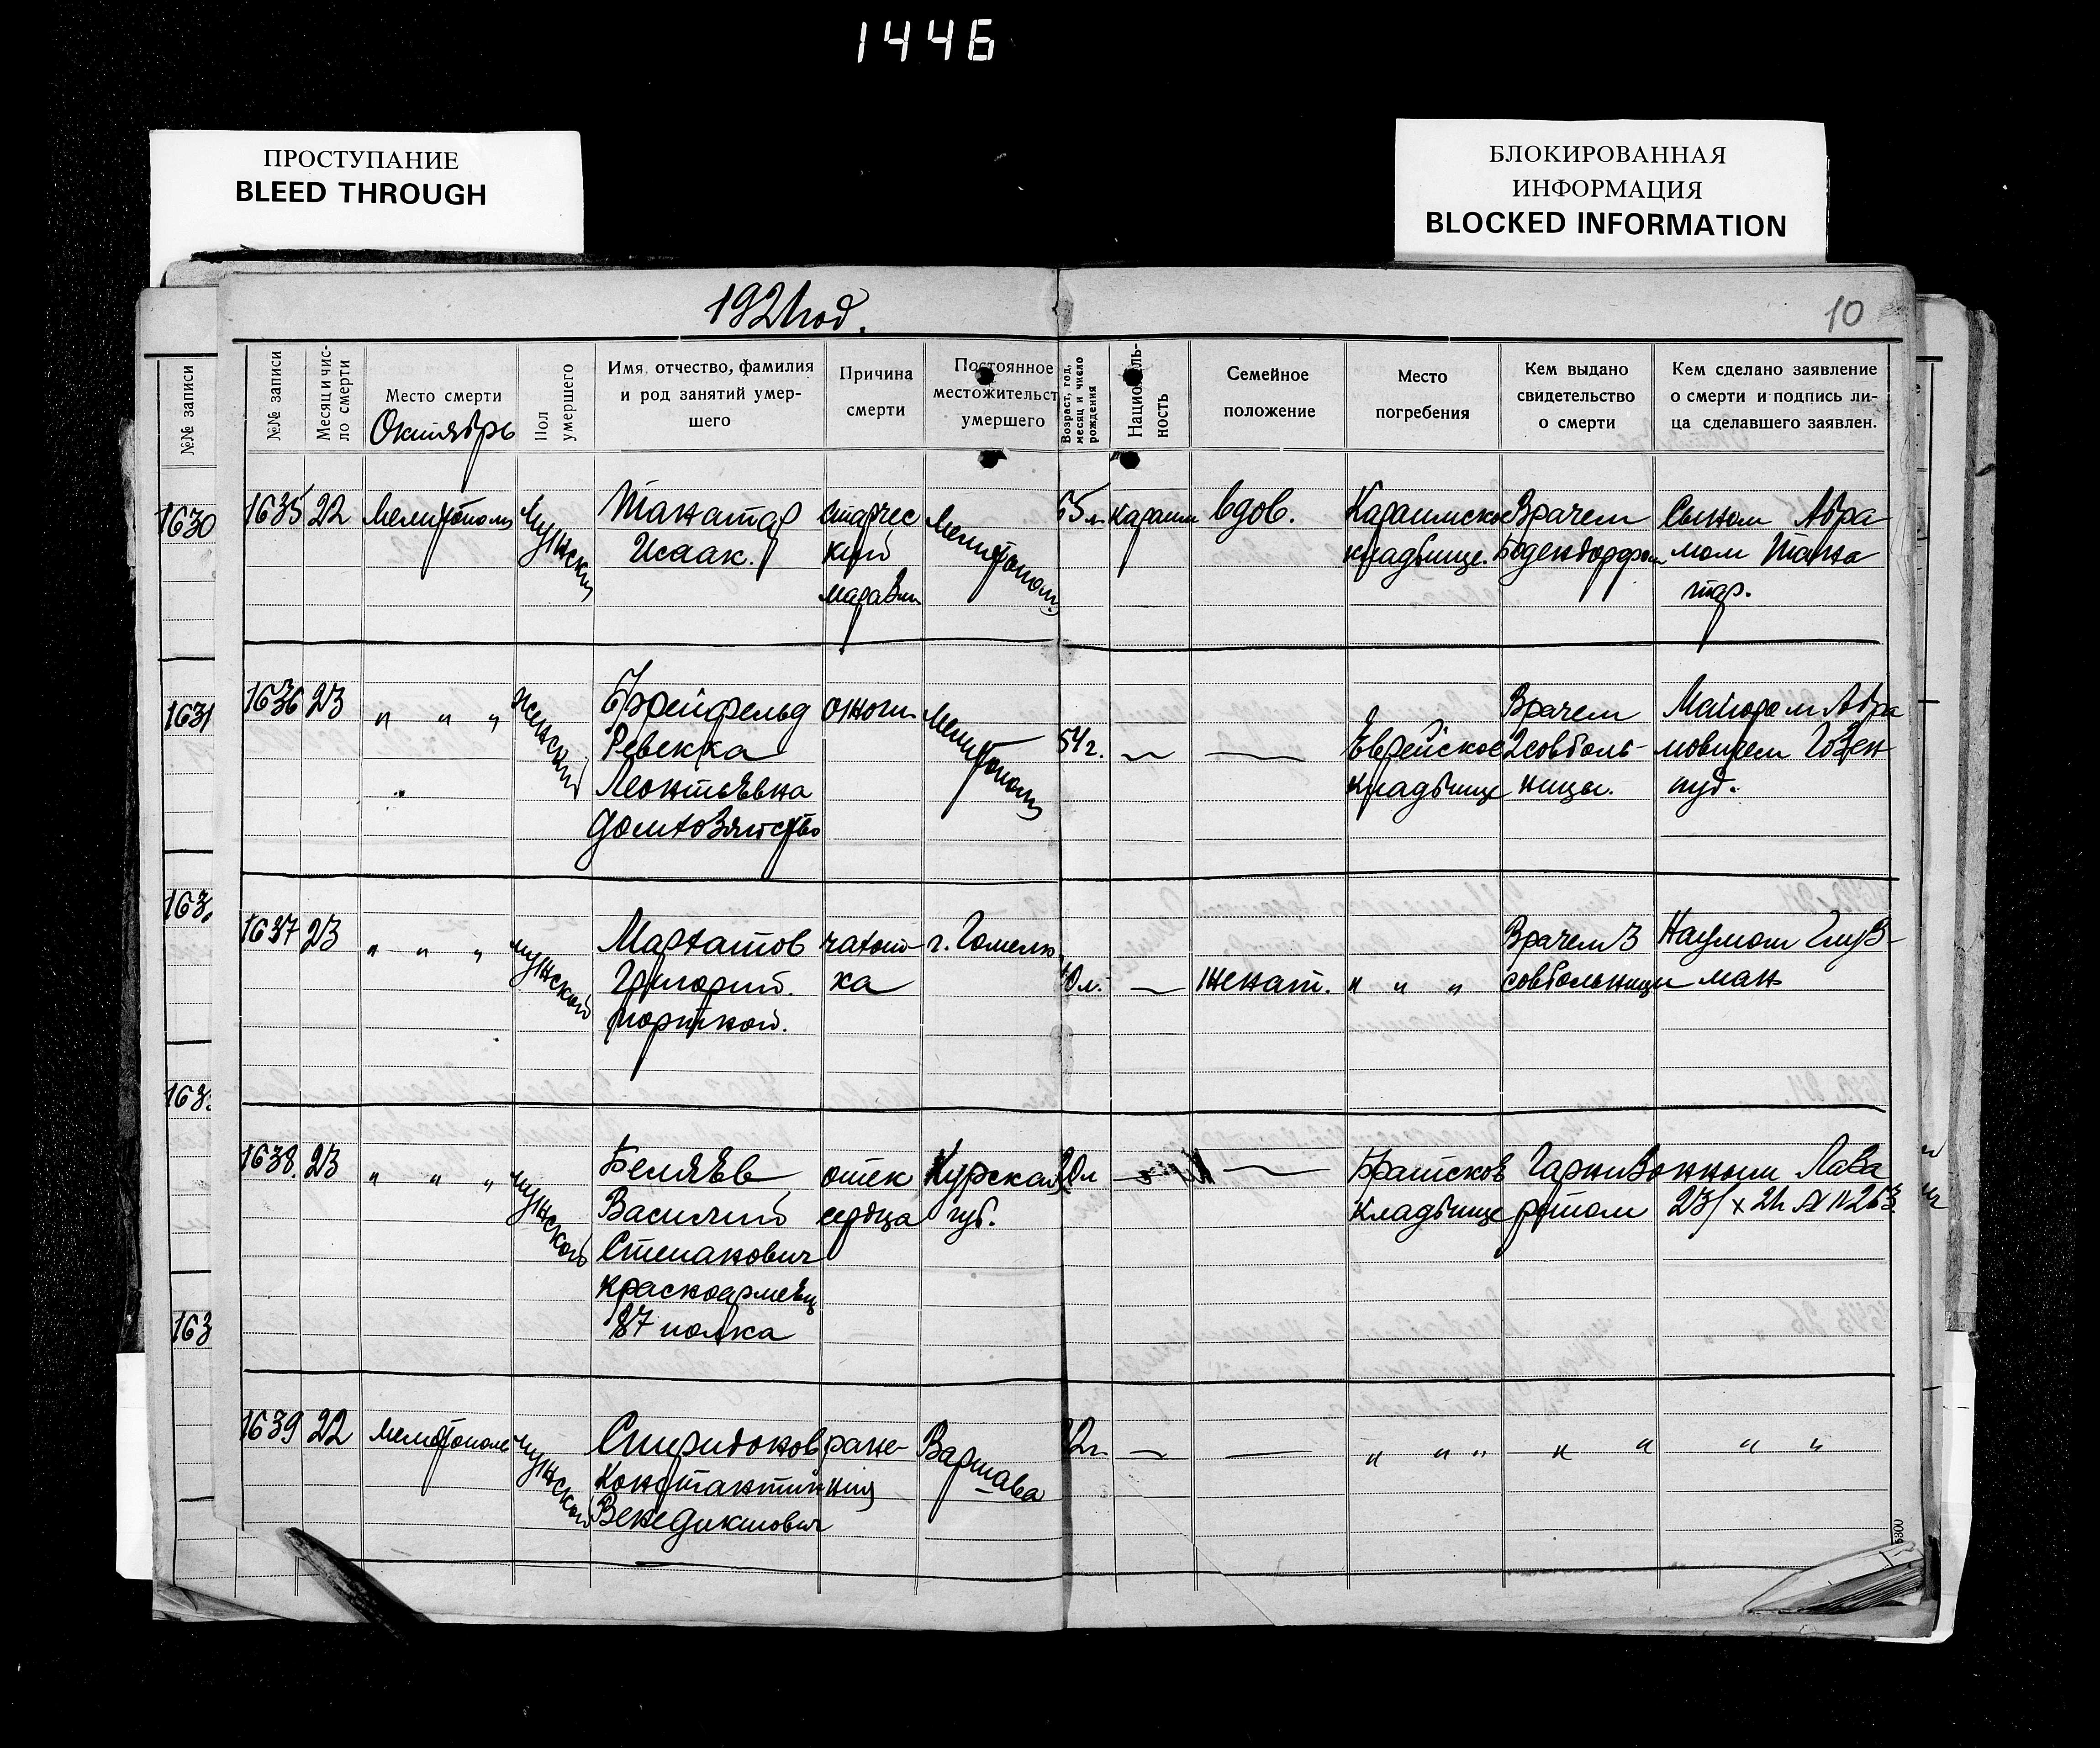 1446
ПРОСТУПАНИЕ
BLEED THROUGH
БЛОКИРОВАННАЯ
ИНФОРМАЦИЯ
BLOCKED INFORMATION
1921 год.
10
№№ записи
№№ записи
Месяц и чис-
ло смерти
Место смерти
Октябрь
Пол
умершего
Имя, отчество, фамилия
и род занятий умер-
шего
Причина
смерти
Постоянное
местожительст
умершего
Возраст, год,
месяц и число
рождения
Национ ль-
ность
Семейное
положение
Место
погребения
Кем выдано
свидетельство
о смерти
Кем сделано заявление
о смерти и подпись ли-
ца сделавшего заявлен.
1630
1631
163
163
163
1635 22 Мелитополь мужский
Танатар
Исаак.
старчес
кий
маразм
Мелитополь
65 л. караим вдов.
Караимское
кладбище.
Врачем
Бодендорфом
Сыном Авра
мом Тана
тар.
1636 23 " " " женский
Брейфельд
Ревекка
Леонтьевна
домхозяйство
ожоги
Мелитополь
54 г. — —
Еврейское
кладбище
Врачем
2 совболь-
ницы.
Майором Авра
мовичем Гозен
пуд.
1637 23 " " " мужской
Маргатов
Григорий.
портной.
чахот-
ка
г. Гомель
0 л. — женат. " " "
Врачем 3
совбольницы
Наумом Глуз-
ман
1638. 23 " " " мужской
Беляев
Василий
Степанович
красноармеец
87 полка
отек
сердца
Курская
губ.
0 л — —
Братское
кладбище
Гарнизонным Лаза
ретом 23/X 21 № 263
1639 22 Мелитополь мужской
Спиридонов
Константин
Венедиктович
ране-
ния
Варшава
2 г. — — " " " " " " "
5300